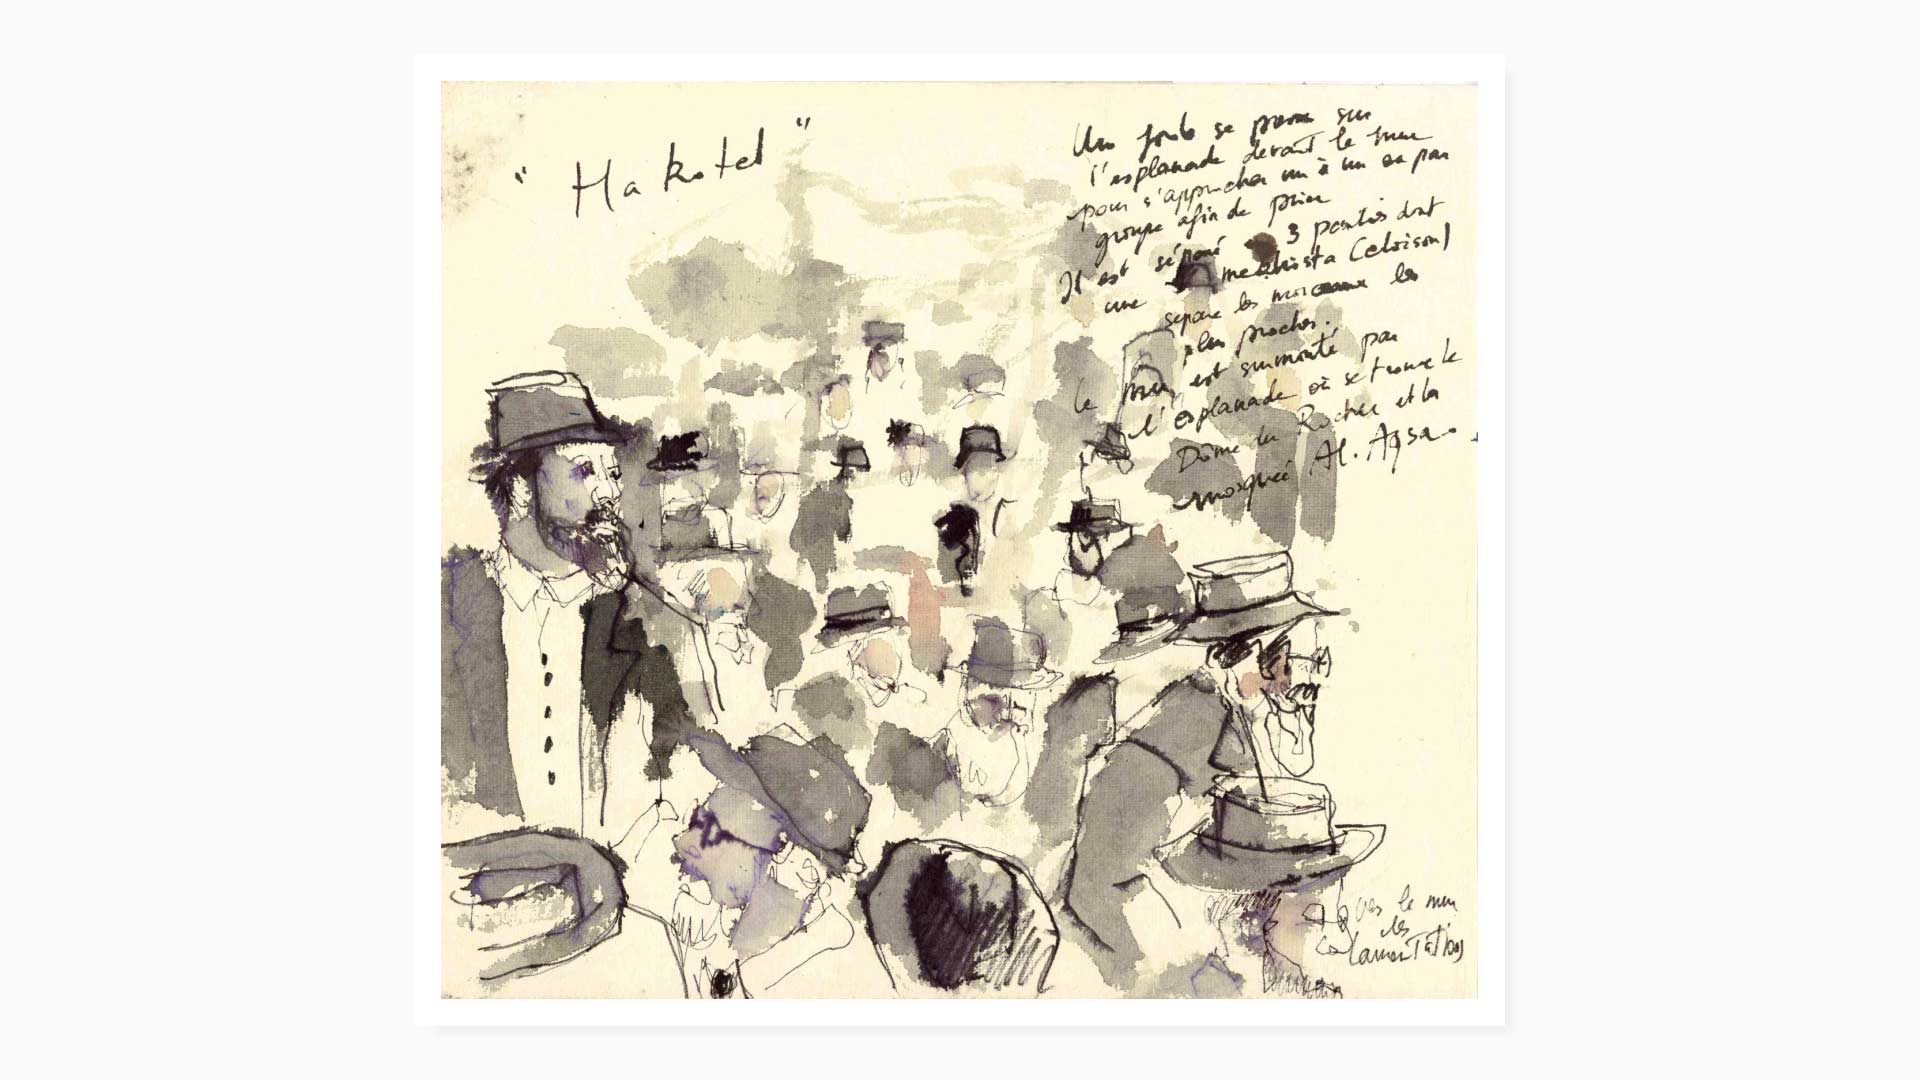 "Ha kotel"
Une foule se presse sur
l'esplanade devant le mur
pour s'approcher un à un ou par
groupe afin de prier
Il est séparé 3 parties dont
une mechista (cloison)
sépare les morceaux les
plus proches.
le mur est surmonté par
l'esplanade où se trouve le
Dôme du Rocher et la
mosquée Al. Aqsa.
vers le mur
des
lamentations